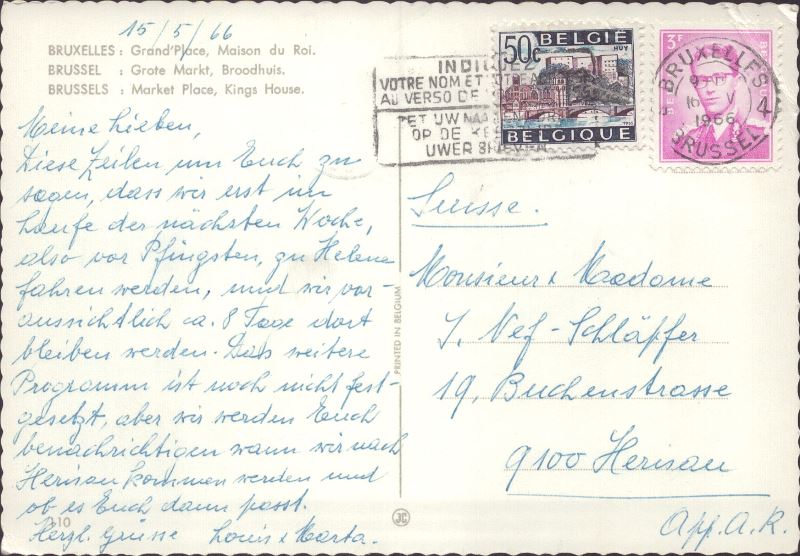 15/5/66
BRUXELLES : Grand'Place, Maison du Roi.
BRUSSEL : Grote Markt, Broodhuis.
BRUSSELS : Market Place, Kings House.
Meine Lieben,
Diese Zeilen um Euch zu
sagen, dass wir erst im
Laufe der nächsten Woche,
also vor Pfingsten, zu Helene
fahren werden, und wir vor-
aussichtlich ca. 8 Tage dort
bleiben werden. Das weitere
Programm ist noch nicht fest-
gesetzt, aber wir werden Euch
benachrichtigen wann wir nach
Herisau kommen werden und
ob es Euch dann passt.
Herzl. Grüsse Louis & Marta.
PRINTED IN BELGIUM
JC
INDIQ
VOTRE NOM ET
AU VERSO DE
OP DE
UWER BRIEVEN
50c BELGIË
HUY
BELGIQUE
3F
BRUXELLES
16
1966
4
BRUSSEL
Suisse.
Monsieur & Madame
J. Nef-Schläpfer
19, Buchenstrasse
9100 Herisau
App. A. R.